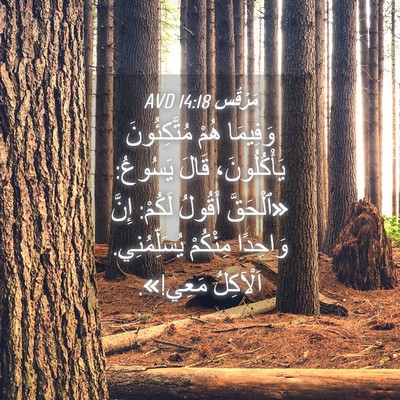 مَرْقُس 14:18 AVD
وَفِيمَا هُمْ مُتَّكِئُونَ
يَأْكُلُونَ، قَالَ يَسُوعُ:
«ٱلْحَقَّ أَقُولُ لَكُمْ: إِنَّ
وَاحِدًا مِنْكُمْ يُسَلِّمُنِي.
اَلْآكِلُ مَعِي!».